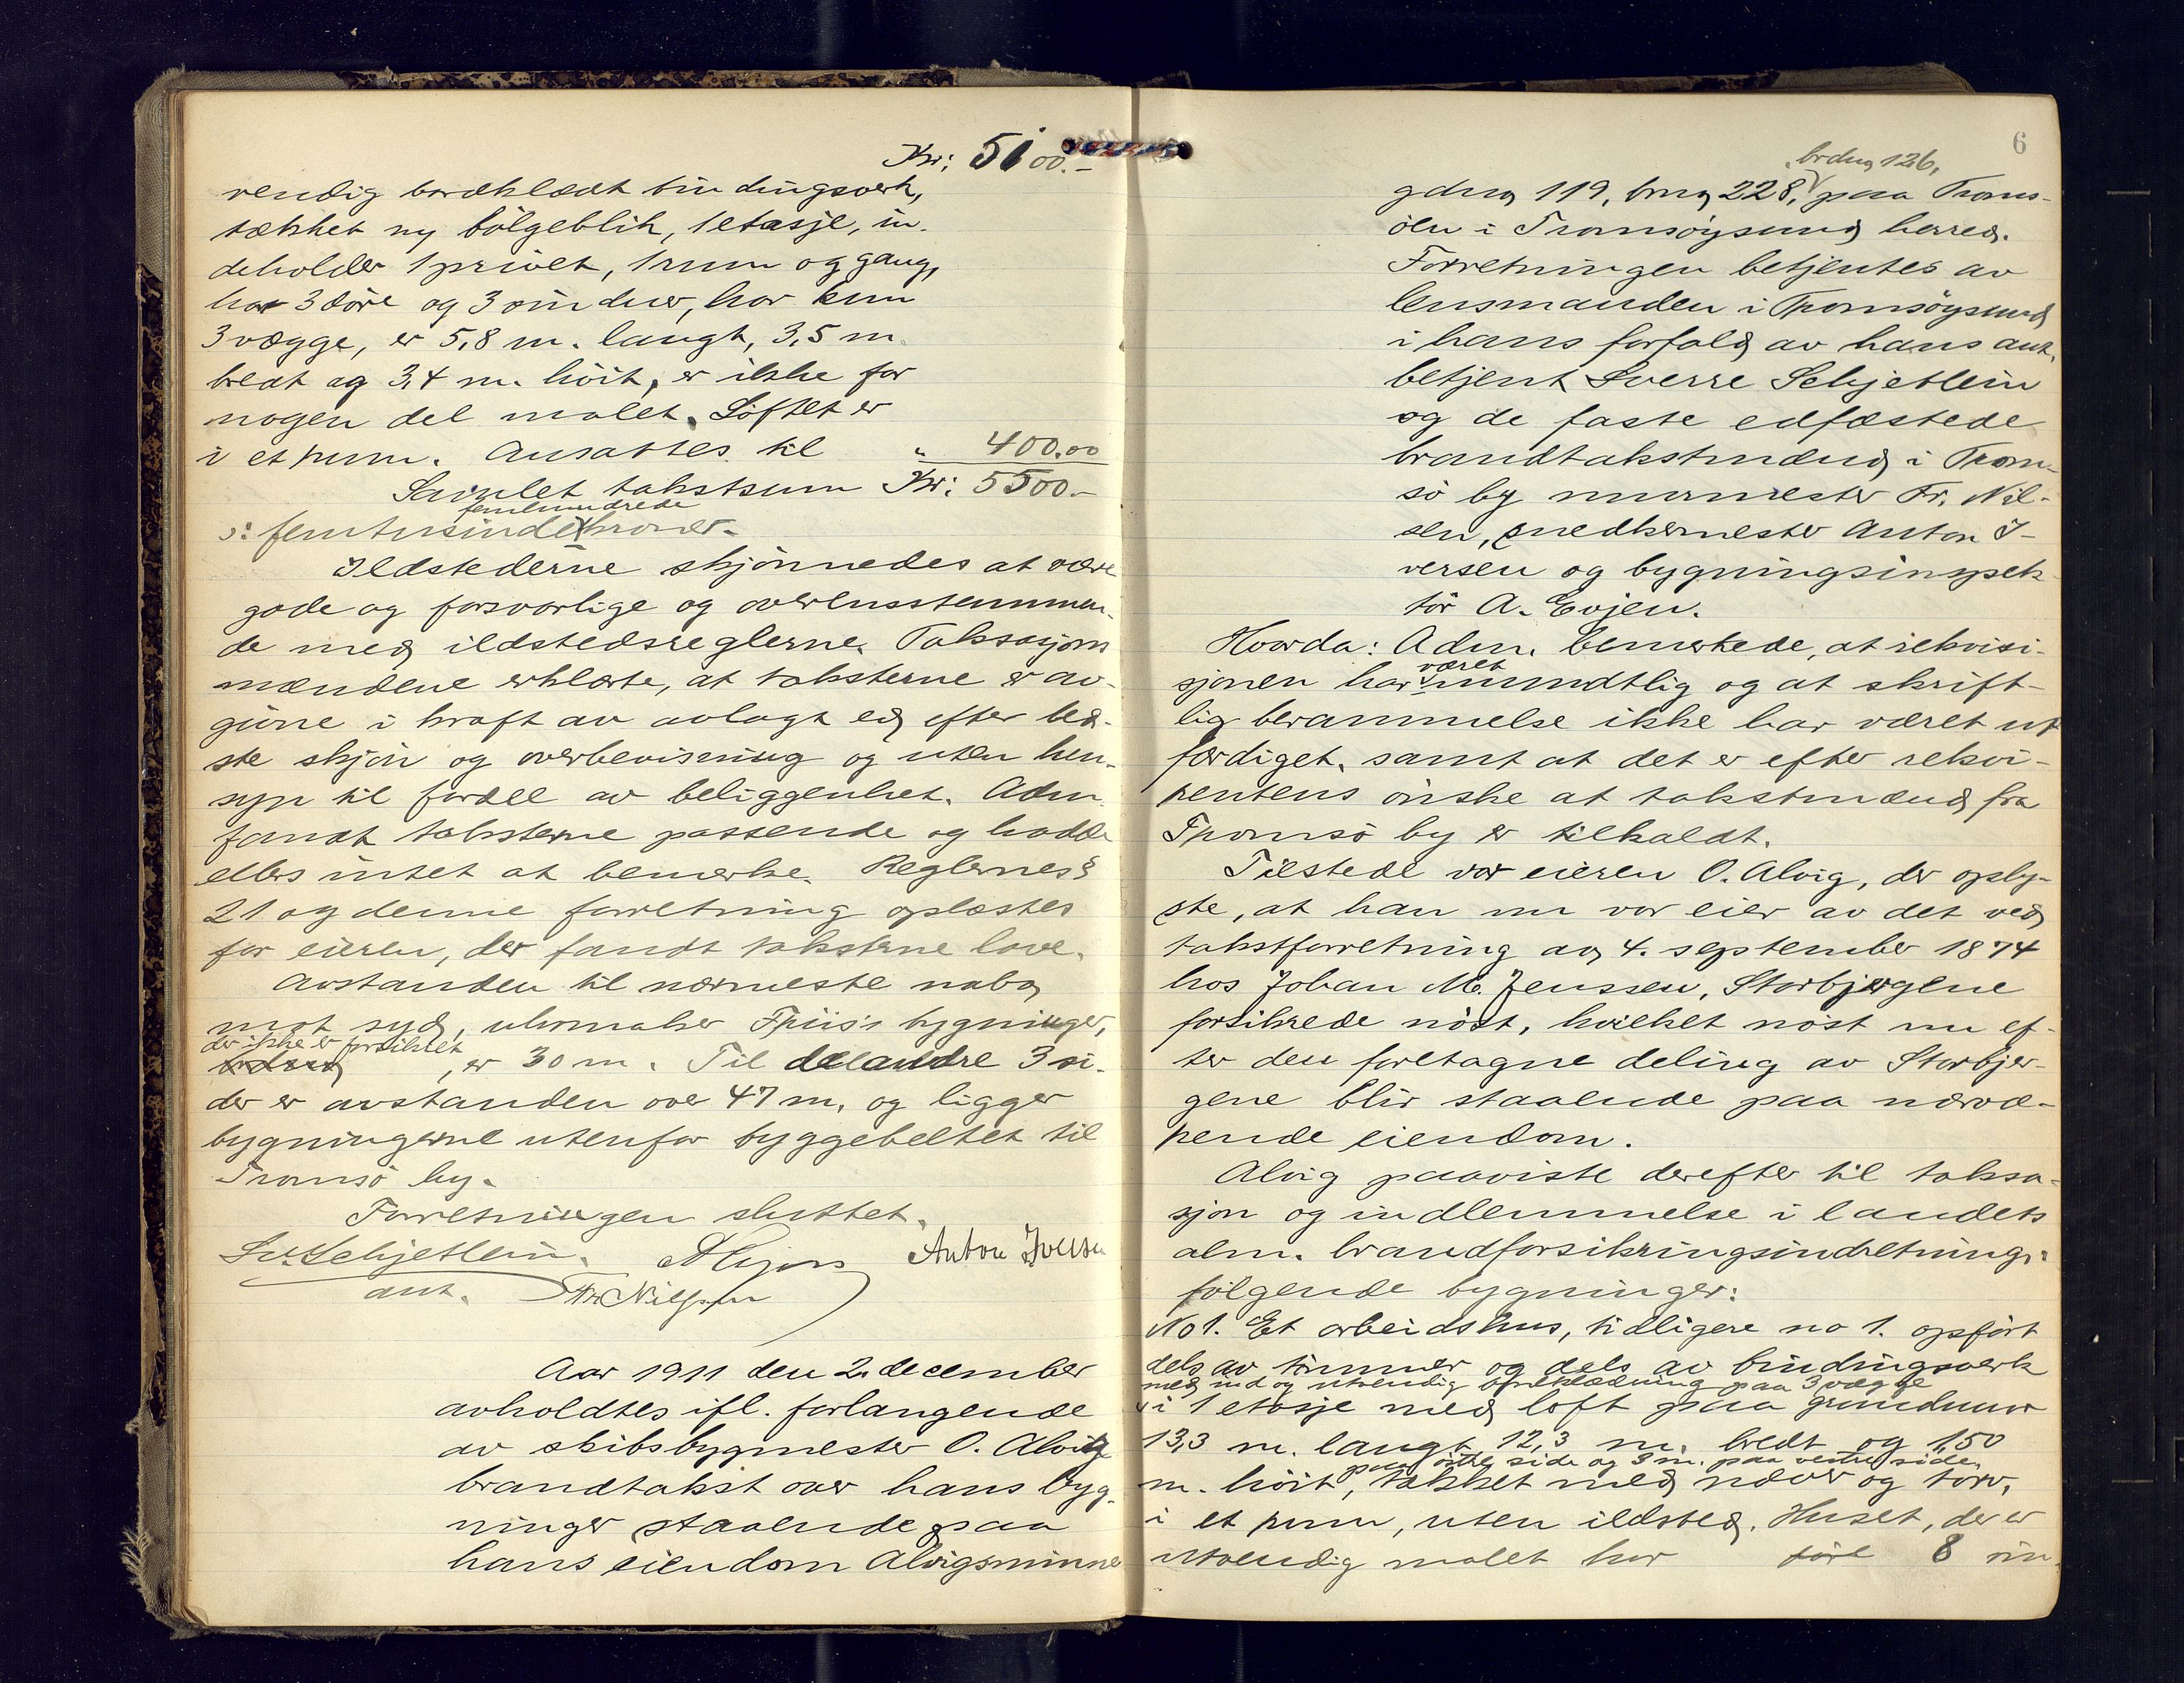 Kr: 5100.-
vendig bordklædt bindingsverk,
tækket ny bølgeblik, 1 etasje, in-
deholder 1 privet, 1 rum og gang,
har 3 döre og 3 vinduer, har kun
3 vægge, er 5,8 m. langt, 3,5 m.
bredt og 3,4 m. höit, er ikke for
nogen del malet. Löftet er
i et rum. Ansattes til " 400.00
Samlet takstsum Kr: 5500.-
femhundrede
ɔ: femtusinde kroner.-
Ildstederne skjönnedes at være
gode og forsvarlige og overensstemmen-
de med ildstedsreglerne. Taksasjons
mændene erklærte, at taksterne er av-
givne i kraft av avlagt ed efter bed-
ste skjön og overbevisning og uten hen-
syn til fordel av beliggenhet. Adm.
fandt taksterne passende og hadde
ellers intet at bemerke. Reglernes §
21 og denne forretning oplæstes
for eieren, der fandt taksterne lave.
Avstanden til nærmeste nabo,
mot syd, uhrmaker Friis's bygninger,
der ikke er forsikret
, er 30 m. Til de andre 3 si-
der er avstanden over 47 m, og ligger
bygningerne utenfor byggebeltet til
Tromsö by.
Forretningen sluttet.
Sv. Schjetlein. A Evjen Anton Iversen
ant. Fr. Nilssen
Aar 1911 den 2. december
avholdtes ifl. forlangende
av skibsbygmester O. Alvig
brandtakst over hans byg-
ninger staaende paa
hans eiendom Alvigsminne
6
brdno 126,
gdno 119, bno 228, paa Troms-
öen i Tromsöysund herred.
Forretningen betjentes av
lensmanden i Tromsöysund
i hans forfald av hans aut.
betjent Sverre Schjetlein
og de faste edfæstede
brandtakstmænd i Trom-
sö by murmester Fr. Nil-
sen, snedkermester Anton I-
versen og bygningsinspek-
tör A. Evjen.
Hvorda: Adm. bemerkede, at rekvisi-
været
sjonen har mundtlig og at skrift-
lig berammelse ikke har været ut
færdiget, samt at det er efter rekvi-
rentens önske at takstmænd fra
Tromsö by er tilkaldt.
Tilstede var eieren O. Alvig, der oply-
ste, at han nu var eier av det ved
takstforretning av 4. september 1874
hos Johan M. Jenssen, Storbjergene
forsikrede nöst, hvilket nöst nu ef-
ter den foretagne deling av Storbjer-
gene blir staaende paa nærvæ-
rende eiendom.
Alvig paaviste derefter til taksa-
sjon og indlemmelse i landets
alm. brandforsikringsindretning:
fölgende bygninger:
No 1. Et arbeidshus, tidligere no 1. opfört
dels av tömmer og dels av bindingsverk
med ind og utvendig bordklædning paa 3 vægge
i 1 etasje med loft paa grundmur
13,3 m. langt, 12,3 m. bredt og 1,50
paa östre side og 3 m. paa vestre side,
m. höit, tækket med næver og torv,
i et rum, uten ildsted. Huset, der er
utvendig malet har döre 8 vin-